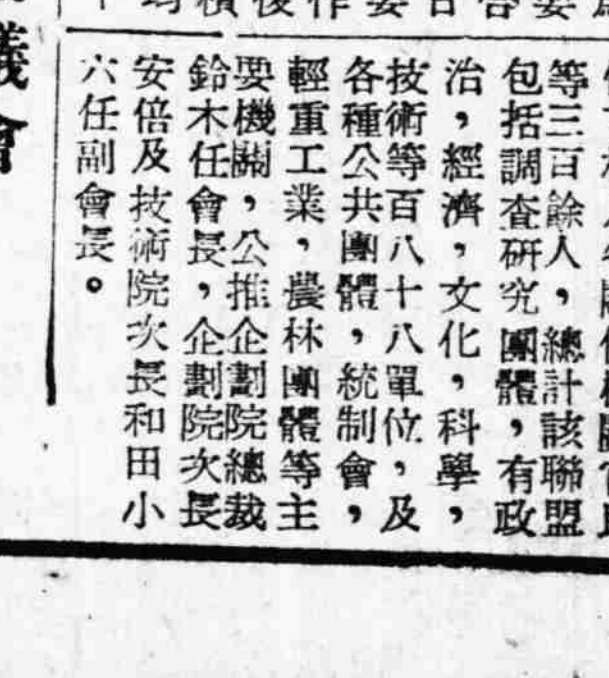 等三百餘人，總計該聯盟
包括調查研究團體，有政
治，經濟，文化，科學，
技術等百八十八單位，及
各種公共團體，統制會，
輕重工業，農林團體等主
要機關，公推企劃院總裁
鈴木任會長，企劃院次長
安倍及技術院次長和田小
六任副會長。
議會